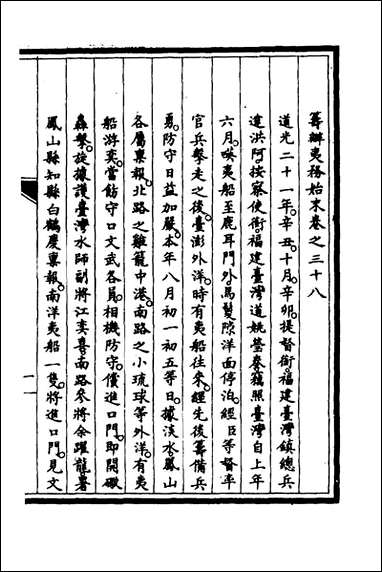 籌辦夷務始末卷之三十八
道光二十一年辛丑十月辛卯提督銜福建臺灣鎮總兵
達洪阿按察使銜福建臺灣道姚瑩奏竊照臺灣自上年
六月㗆夷船至鹿耳門外馬鬃隙洋面停泊經臣等督率
官兵擊走之後臺澎外洋時有夷船往來經先後籌備兵
勇防守日益加嚴本年八月初一初五等日據淡水鳳山
各屬稟報北路之小雞籠中港南路之小琉球等外洋有夷
船游奕當飭守口文武各員相機防守儻進口門即開礮
轟擊旋據護臺灣水師副將江奕喜南路參將余躍龍署
鳳山縣知縣白鶴慶稟報南洋夷船一隻將進口門見文